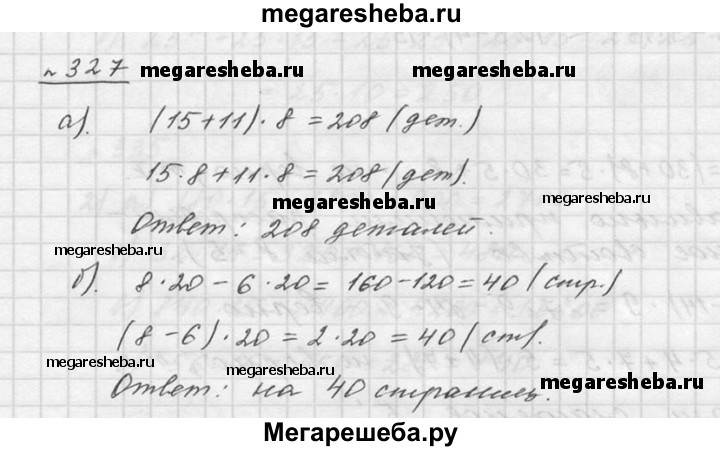 megaresheba.ru
№ 327
megaresheba.ru megaresheba.ru
а). (15+11)·8=208 (дет.)
15·8+11·8=208 (дет).
megaresheba.ru
Ответ: 208 деталей.
megaresheba.ru
б). 8·20-6·20=160-120=40 (стр.)
(8-6)·20=2·20=40 (ст).
megaresheba.ru
megaresheba.ru
Ответ: на 40 страниц.
Мегарешеба.ру